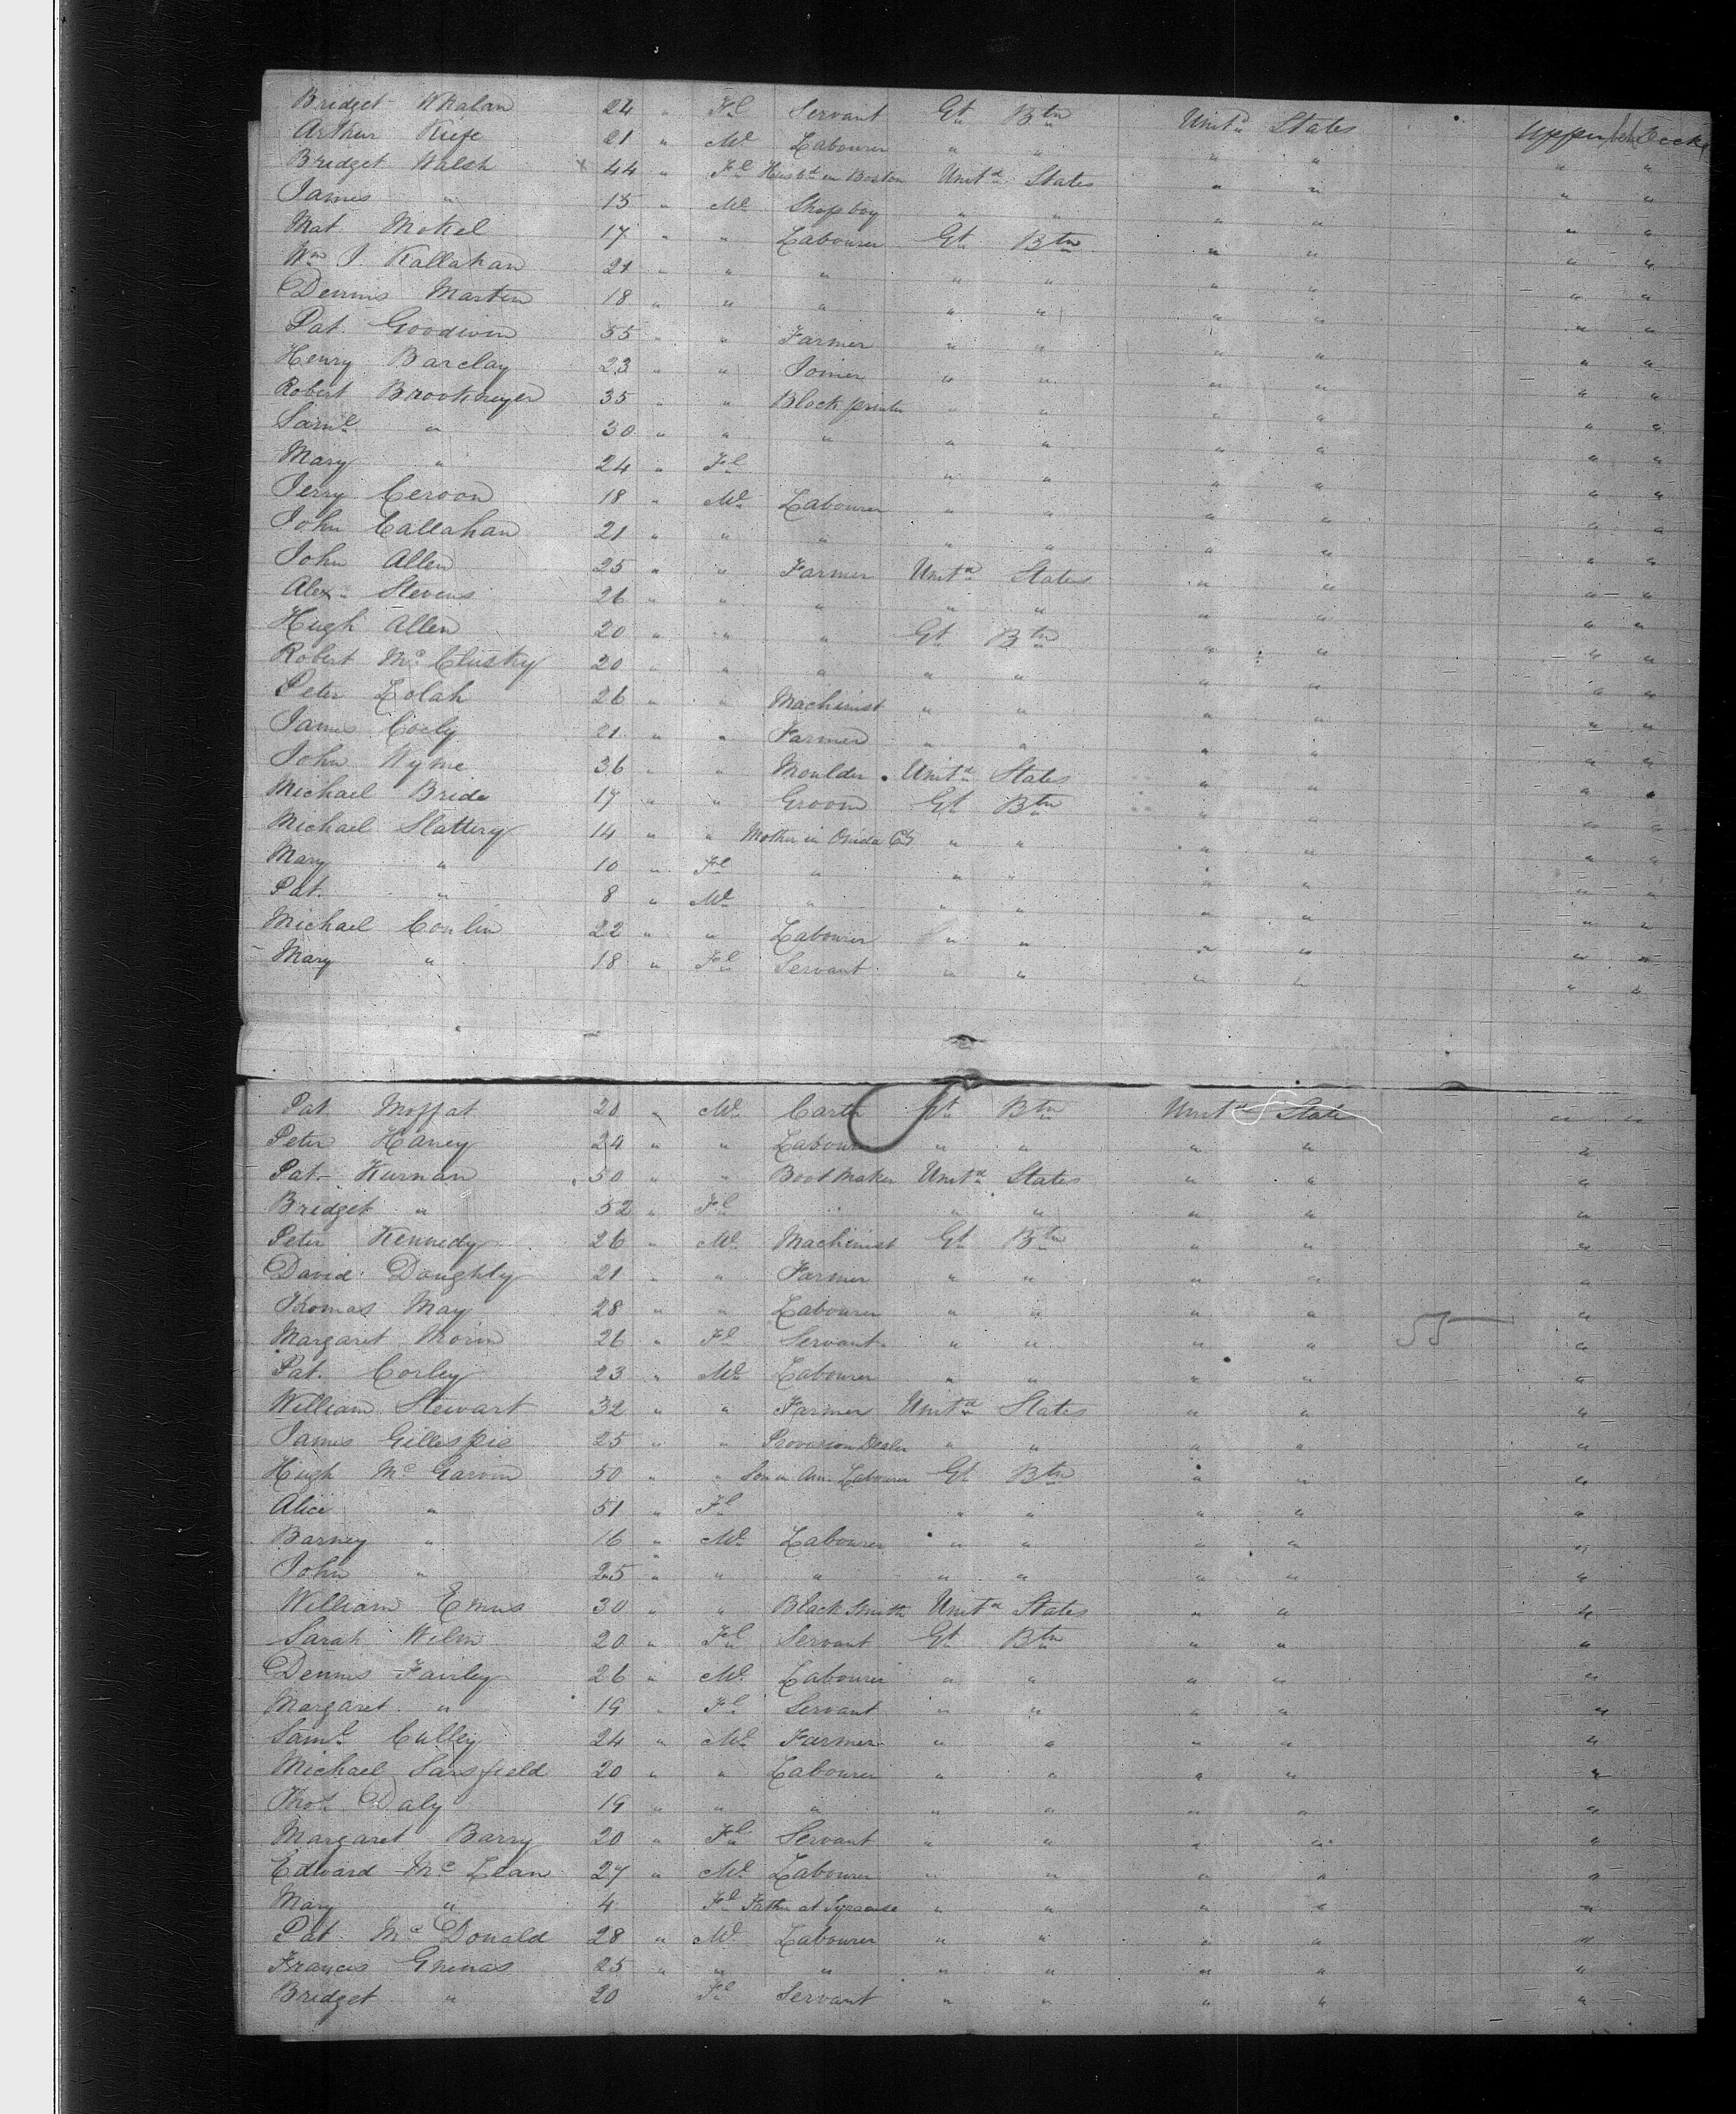 Bridget Whalan 24 " Fl Servant Gt Btn Unitd States Upper Deck
Arthur Kiefe 21 " Ml Labourer " " " " " "
Bridget Walsh 44 " Fl Husbd in Boston Unitd States " " " "
James " 15 " Ml Shop boy " " " " " "
Mat Mokel 17 " " Labourer Gt Btn " " " "
Wm J. Kallahan 21 " " " " " " " " "
Dennis Martin 18 " " " " " " " " "
Pat. Goodwin 55 " " Farmer " " " " " "
Henry Barclay 23 " " Joiner " " " " " "
Robert Brookmeyer 35 " " Block printer " " " " " "
Saml " 30 " " " " " " " " "
Mary " 24 " Fl " " " " " "
Jerry Ceroon 18 " Ml Labourer " " " " " "
John Callahan 21 " " " " " " " " "
John Allen 25 " " Farmer Unitd States " " " "
Alexr Stevens 26 " " " " " " " " "
Hugh Allen 20 " " " Gt Btn " " " "
Robert McClusky 20 " " " " " " " " "
Peter Lolah 26 " " Machinist " " " " " "
James Cooly 21 " " Farmer " " " " " "
John Wyme 36 " " Moulder Unitd States " " " "
Michael Bride 17 " " Groom Gt Btn " " " "
Michael Slattery 14 " " Mother in Onida Cty " " " " " "
Mary " 10 " Fl " " " " " " "
Pat. " 8 " Ml " " " " " " "
Michael Conlin 22 " " Labourer " " " " " "
Mary " 18 " Fl Servant " " " " " "
Pat Moffat 20 " Ml Carter Gt Btn Unitd State " "
Peter Haney 24 " " Labourer " " " " "
Pat. Kurnan 50 " " Boot Maker Unitd States " " "
Bridget " 52 " Fl " " " " " "
Peter Kennedy 26 " Ml Machinist Gt Btn " " "
David Doughty 21 " " Farmer " " " " "
Thomas May 28 " " Labourer " " " " "
Margaret Morin 26 " Fl Servant " " " " 55 "
Pat. Corley 23 " Ml Labourer " " " " "
William Stewart 32 " " Farmer Unitd States " " "
James Gillespie 25 " " Provision Dealer " " " " "
Hugh McGarvin 50 " " Son in Am. Labourer Gt Btn " " "
Alice " 51 " Fl " " " " "
Barney " 16 " Ml Labourer " " " " "
John " 25 " " " " " " " "
William Emus 30 " " Black Smith Unitd States " " "
Sarah Wilm 20 " Fl Servant Gt Btn " " "
Dennis Fairley 26 " Ml Labourer " " " " "
Margaret " 19 " Fl Servant " " " " "
Saml Culley 24 " Ml Farmer " " " " "
Michael Sarsfield 20 " " Labourer " " " " "
Thos Daly 19 " " " " " " " "
Margaret Barry 20 " Fl Servant " " " " "
Edward McLean 27 " Ml Labourer " " " " "
Mary " 4 Fl Father at Syracuse " " " " "
Pat. McDonald 28 " Ml Labourer " " " " "
Francis 25 " " " " " " " "
Bridget " 20 Fl Servant " " " " "